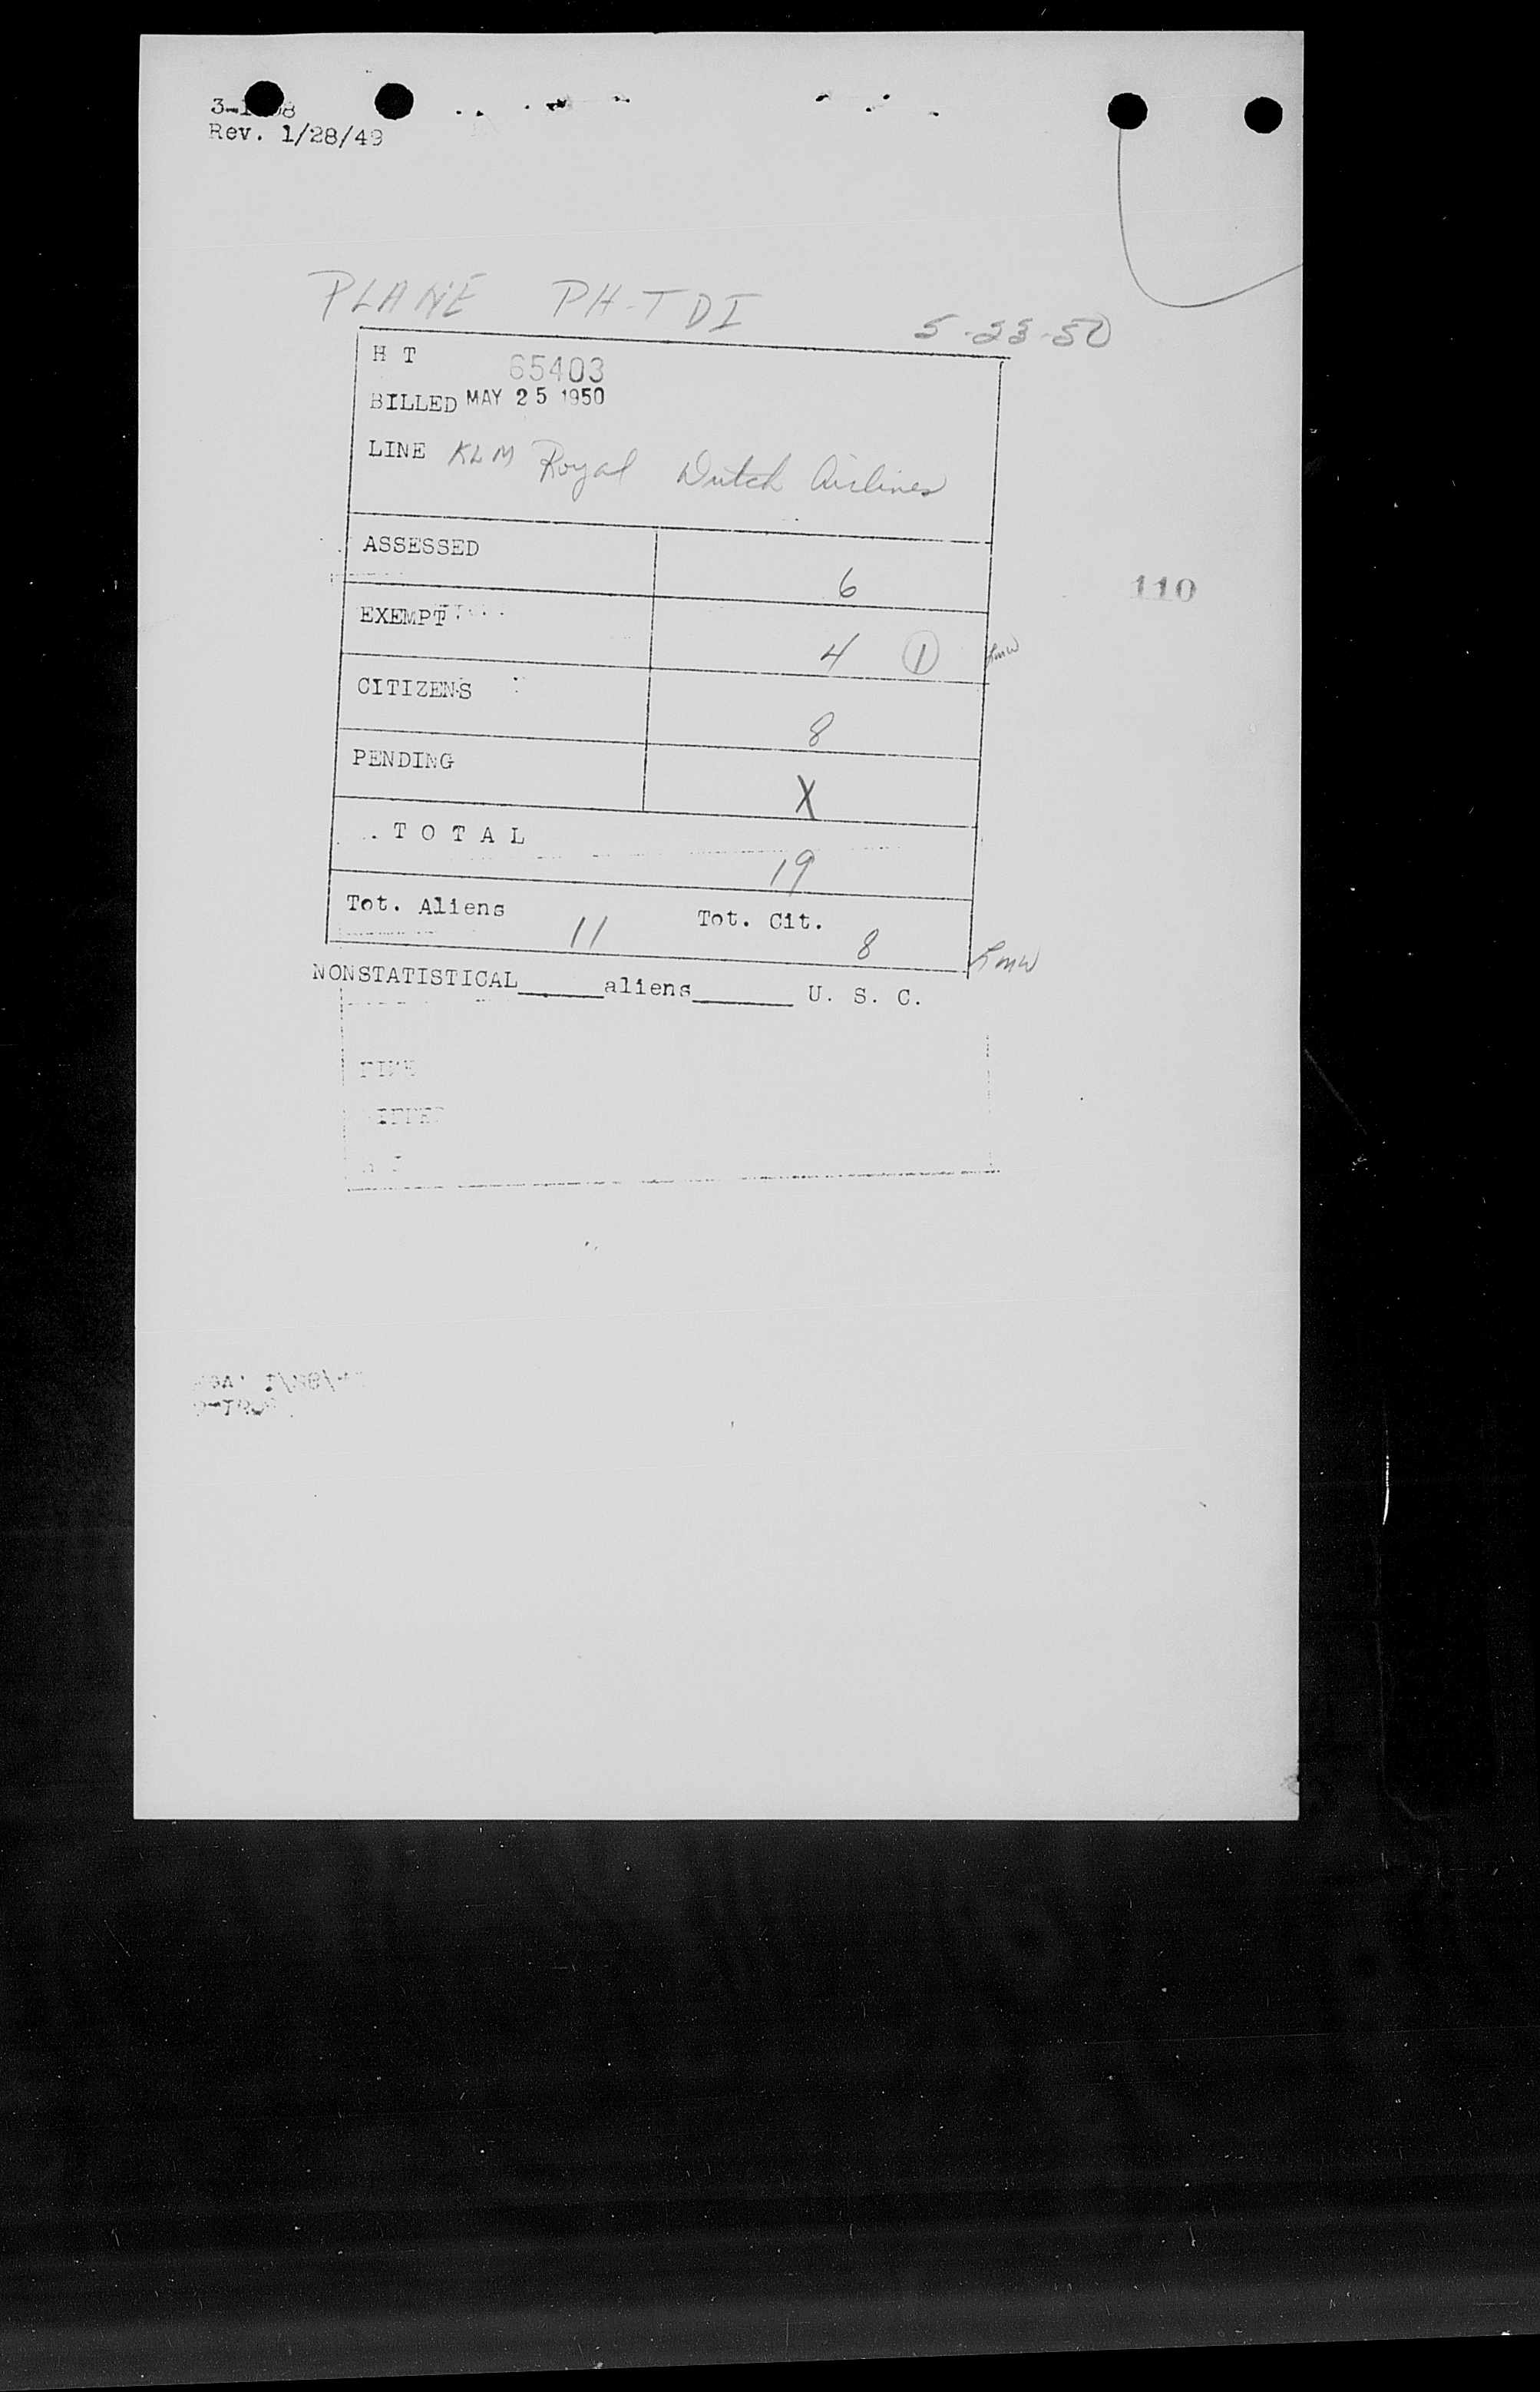 Rev. 1/28/49
PLANE PH-TDI 5-23-50
H T 65403
BILLED MAY 25 1950
LINE KLM Royal Dutch Airlines
ASSESSED 6
110
EXEMPT 4 1 Lmw
CITIZENS 8
PENDING X
TOTAL 19
Tot. Aliens 11 Tot. Cit. 8 Lmw
NONSTATISTICAL______aliens_______ U. S. C.